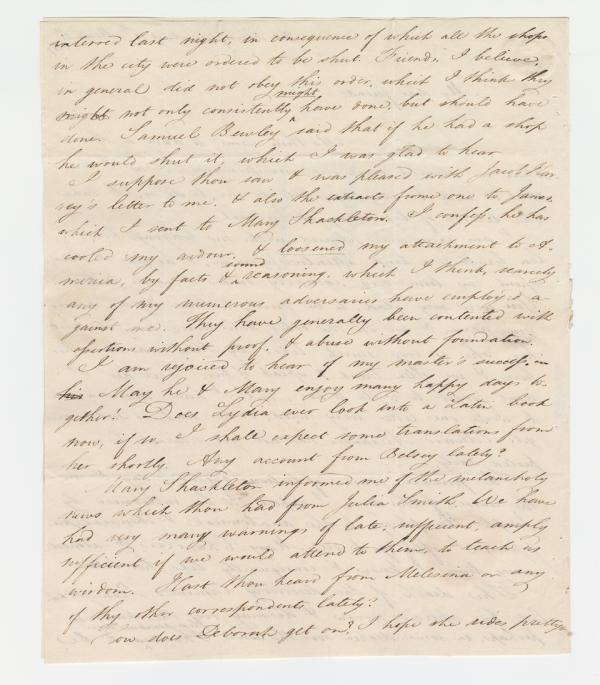 interred last night, in consequence of which all the shops
in the city were ordered to be shut. Friends, I believe,
in general did not obey this order, which I think they
might not only consistently might have done, but should have
done. Samuel Bewley said that if he had a shop
he would shut it, which I was glad to hear
I suppose thou saw & was pleased with Jacob Har-
vey's letter to me, & also the extracts from one to James,
which I sent to Mary Shackleton. I confess he has
cooled my ardour, & loosened my attachment to A-
merica, by facts & sound reasoning, which I think, scarcely
any of my numerous adversaries have employed a-
gainst me. They have generally been contented with
assertions without proof, & abuse without foundation.
I am rejoiced to hear of my master's success. in
his May he & Mary enjoy many happy days to-
gether! Does Lydia ever look into a Latin book
now, if so I shall expect some translations from
her shortly. Any account from Betsey lately?
Mary Shackleton informed me of the melancholy
news which thou had from Julia Smith. We have
had very many warnings of late, sufficient, amply
sufficient if we would attend to them, to teach us
wisdom. Hast thou heard from Melesina or any
of thy other correspondents lately?
How does Deborah get on? I hope she rides pretty